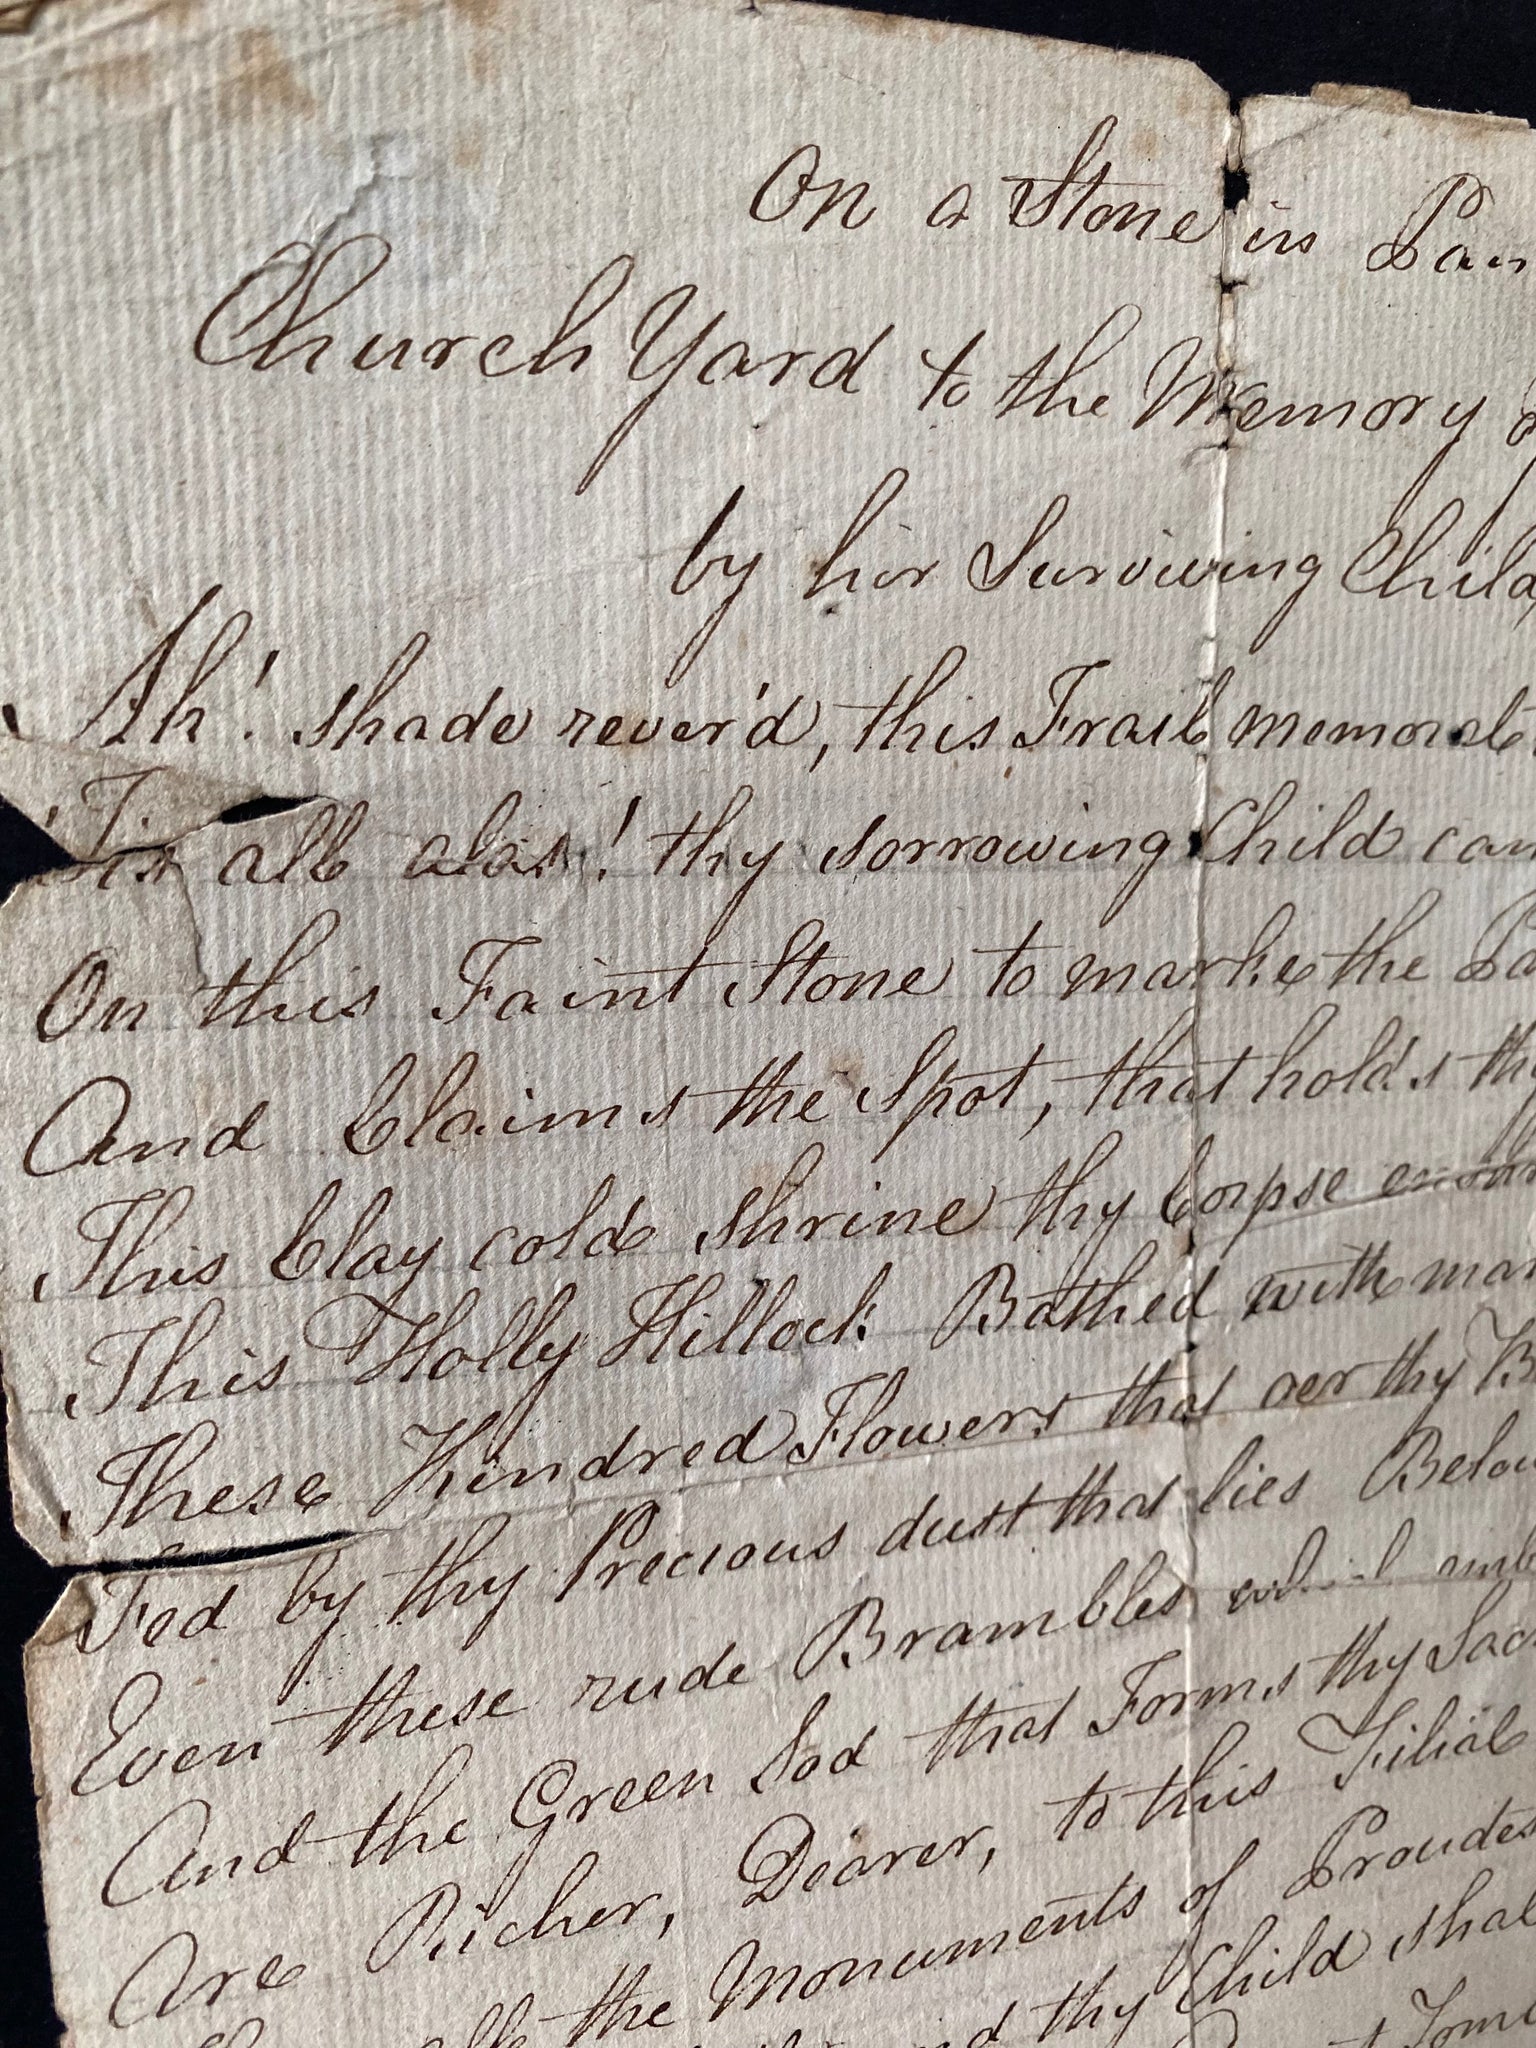 On a Stone in Pan
Church Yard to the Memory of
by her Surviving Child
Ah! shade rever'd, this Frail memorial
'Tis all alas! thy sorrowing Child can
On this Faint Stone to marke the
And Claims the Spot, that hold's thy
This Clay cold shrine thy Corpse
This Holly Hillock Bathed with man
These Kindred Flowers that oer thy
Fed by thy Precious dust that lies Below
Even these rude Brambles
And the Green Sod that Forms thy Sac
Are Richer, Dearer, to this Filial
the Monuments of Proudes
thy Child shal